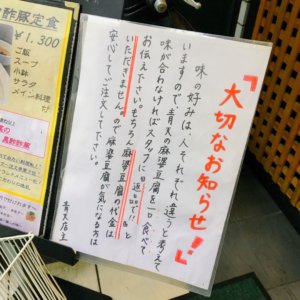 『大切なお知らせ!』
味の好みは人それぞれ違うと考えて
いますので、青天の麻婆豆腐を一口食べて
味が合わなければスタッフに『返品で!!』と
お伝え下さい。もちろん麻婆豆腐の代金は
いただきません。ので麻婆豆腐が気になる方は
安心してご注文して下さい。
青天店主
酢豚定食
¥1,300
ご飯
スープ
小鉢
サラダ
メイン料理